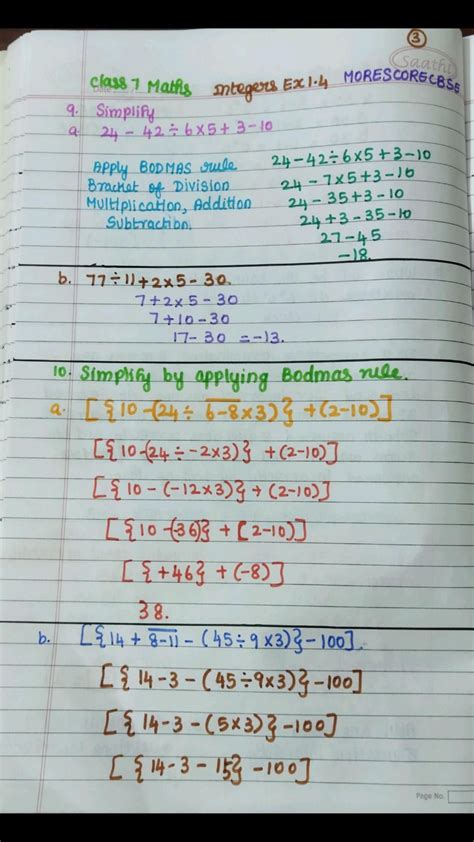 3
Saathi
Class 7 Maths Integers Ex 1.4 MORESCORECBSE
9. Simplify
a 24 - 42 ÷ 6 × 5 + 3 - 10
Apply BODMAS rule
Bracket of Division
Multiplication, Addition
Subtraction.
24 - 42 ÷ 6 × 5 + 3 - 10
24 - 7 × 5 + 3 - 10
24 - 35 + 3 - 10
24 + 3 - 35 - 10
27 - 45
-18
b. 77 ÷ 11 + 2 × 5 - 30.
7 + 2 × 5 - 30
7 + 10 - 30
17 - 30 = -13.
10. Simplify by applying Bodmas rule.
a. [{10 - (24 ÷ 6̅-̅8̅ × 3)} + (2-10)]
[{10 - (24 ÷ -2 × 3)} + (2-10)]
[{10 - (-12 × 3)} + (2-10)]
[{10 - (-36)} + (2-10)]
[{+46} + (-8)]
38.
b. [{14 + 8̅-̅1̅1̅ - (45 ÷ 9 × 3)} - 100].
[{14 - 3 - (45 ÷ 9 × 3)} - 100]
[{14 - 3 - (5 × 3)} - 100]
[{14 - 3 - 15} - 100]
Page No.